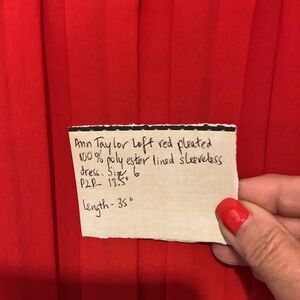 Ann Taylor Loft red pleated
100% polyester lined sleeveless
dress. Size 6
P2P- 18.5"
Length - 35"